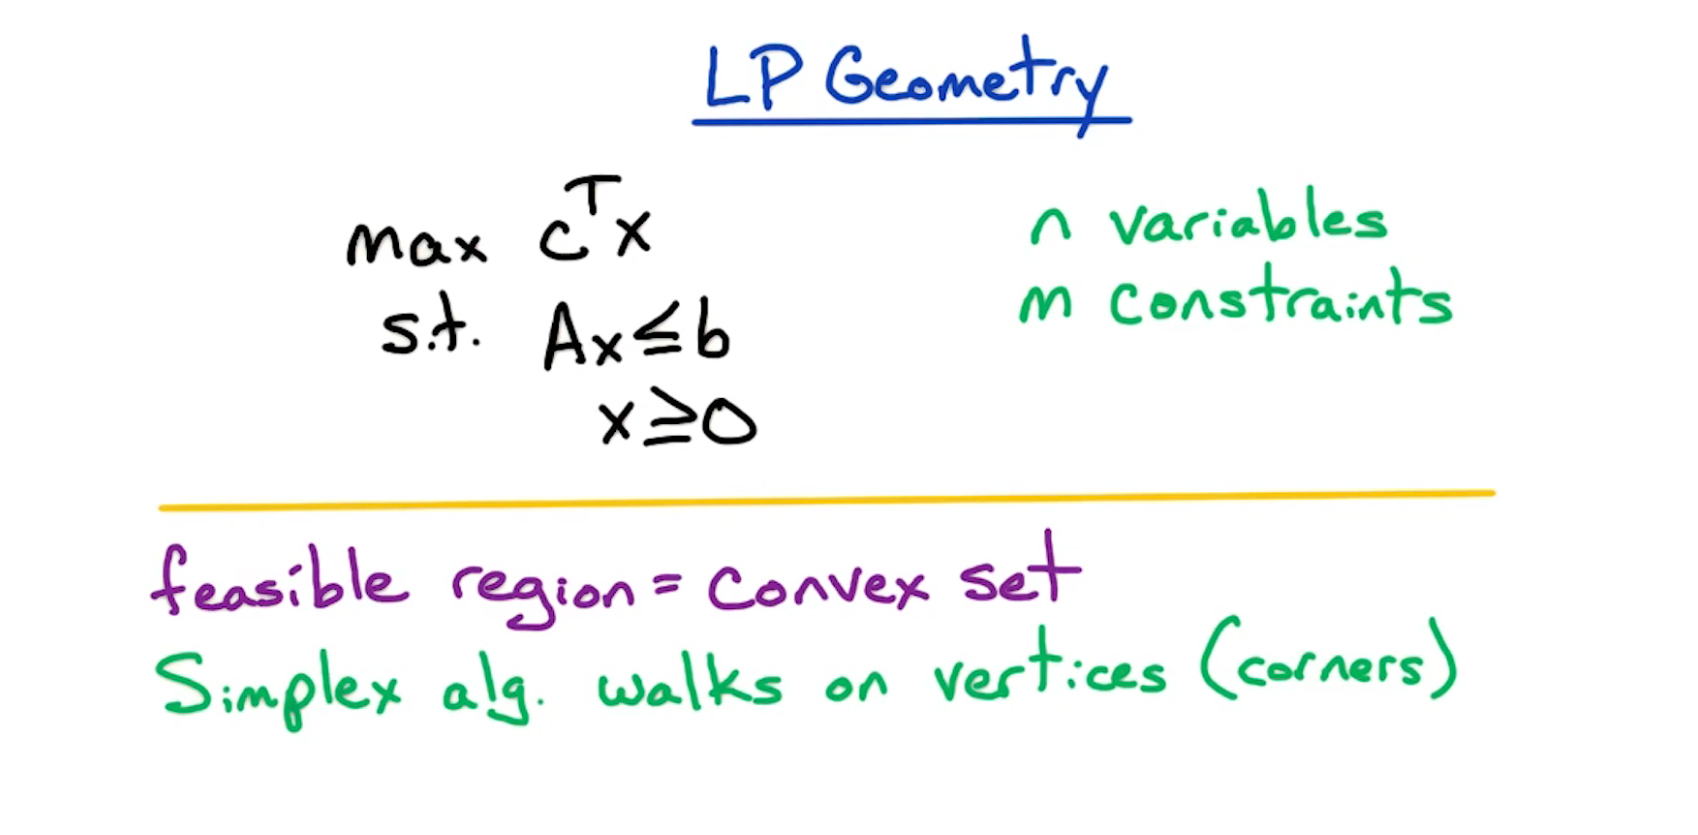 LP Geometry
max cᵀx
s.t. Ax ≤ b
x ≥ 0
n variables
m constraints
feasible region = convex set
Simplex alg. walks on vertices (corners)